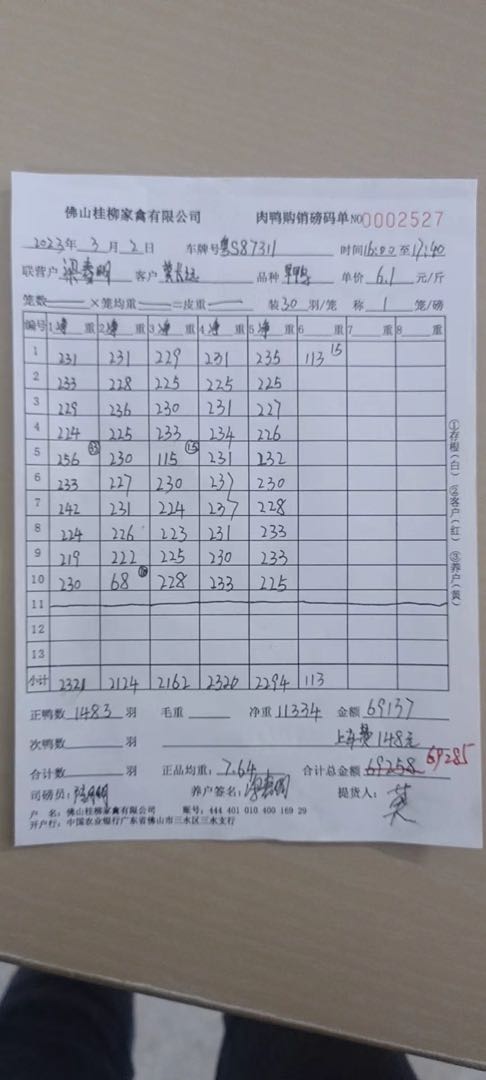 佛山桂柳家禽有限公司 肉鸭购销磅码单 NO 0002527
2023年 3月 2日 车牌号 粤S87311 时间16:00至17:40
联营户 梁 明 客户 黄长远 品种 单价 6.1 元/斤
笼数 ×笼均重 =皮重 装30羽/笼 称 1 笼/磅
编号 1净重 2净重 3净重 4净重 5净重 6 重 7 重 8 重
1 231 231 229 231 235 113 15
2 233 228 225 225 225
3 229 236 230 231 227
4 224 225 233 234 226
5 256 33 230 115 15 231 232
6 233 227 230 237 230
7 242 231 224 237 228
8 224 226 223 231 233
9 219 222 225 230 233
10 230 68 228 233 225
11
12
13
小计 2321 2124 2162 2320 2294 113
①存根(白) ②客户(红) ③养户(黄)
正鸭数 1483 羽 毛重 净重 11334 金额 69137
次鸭数 羽 148元
合计数 羽 正品均重: 7.64 合计总金额 69258 69285
司磅员: 养户签名: 提货人:
户 名: 佛山桂柳家禽有限公司 账号: 444 401 010 400 169 29
开户行: 中国农业银行广东省佛山市三水区三水支行